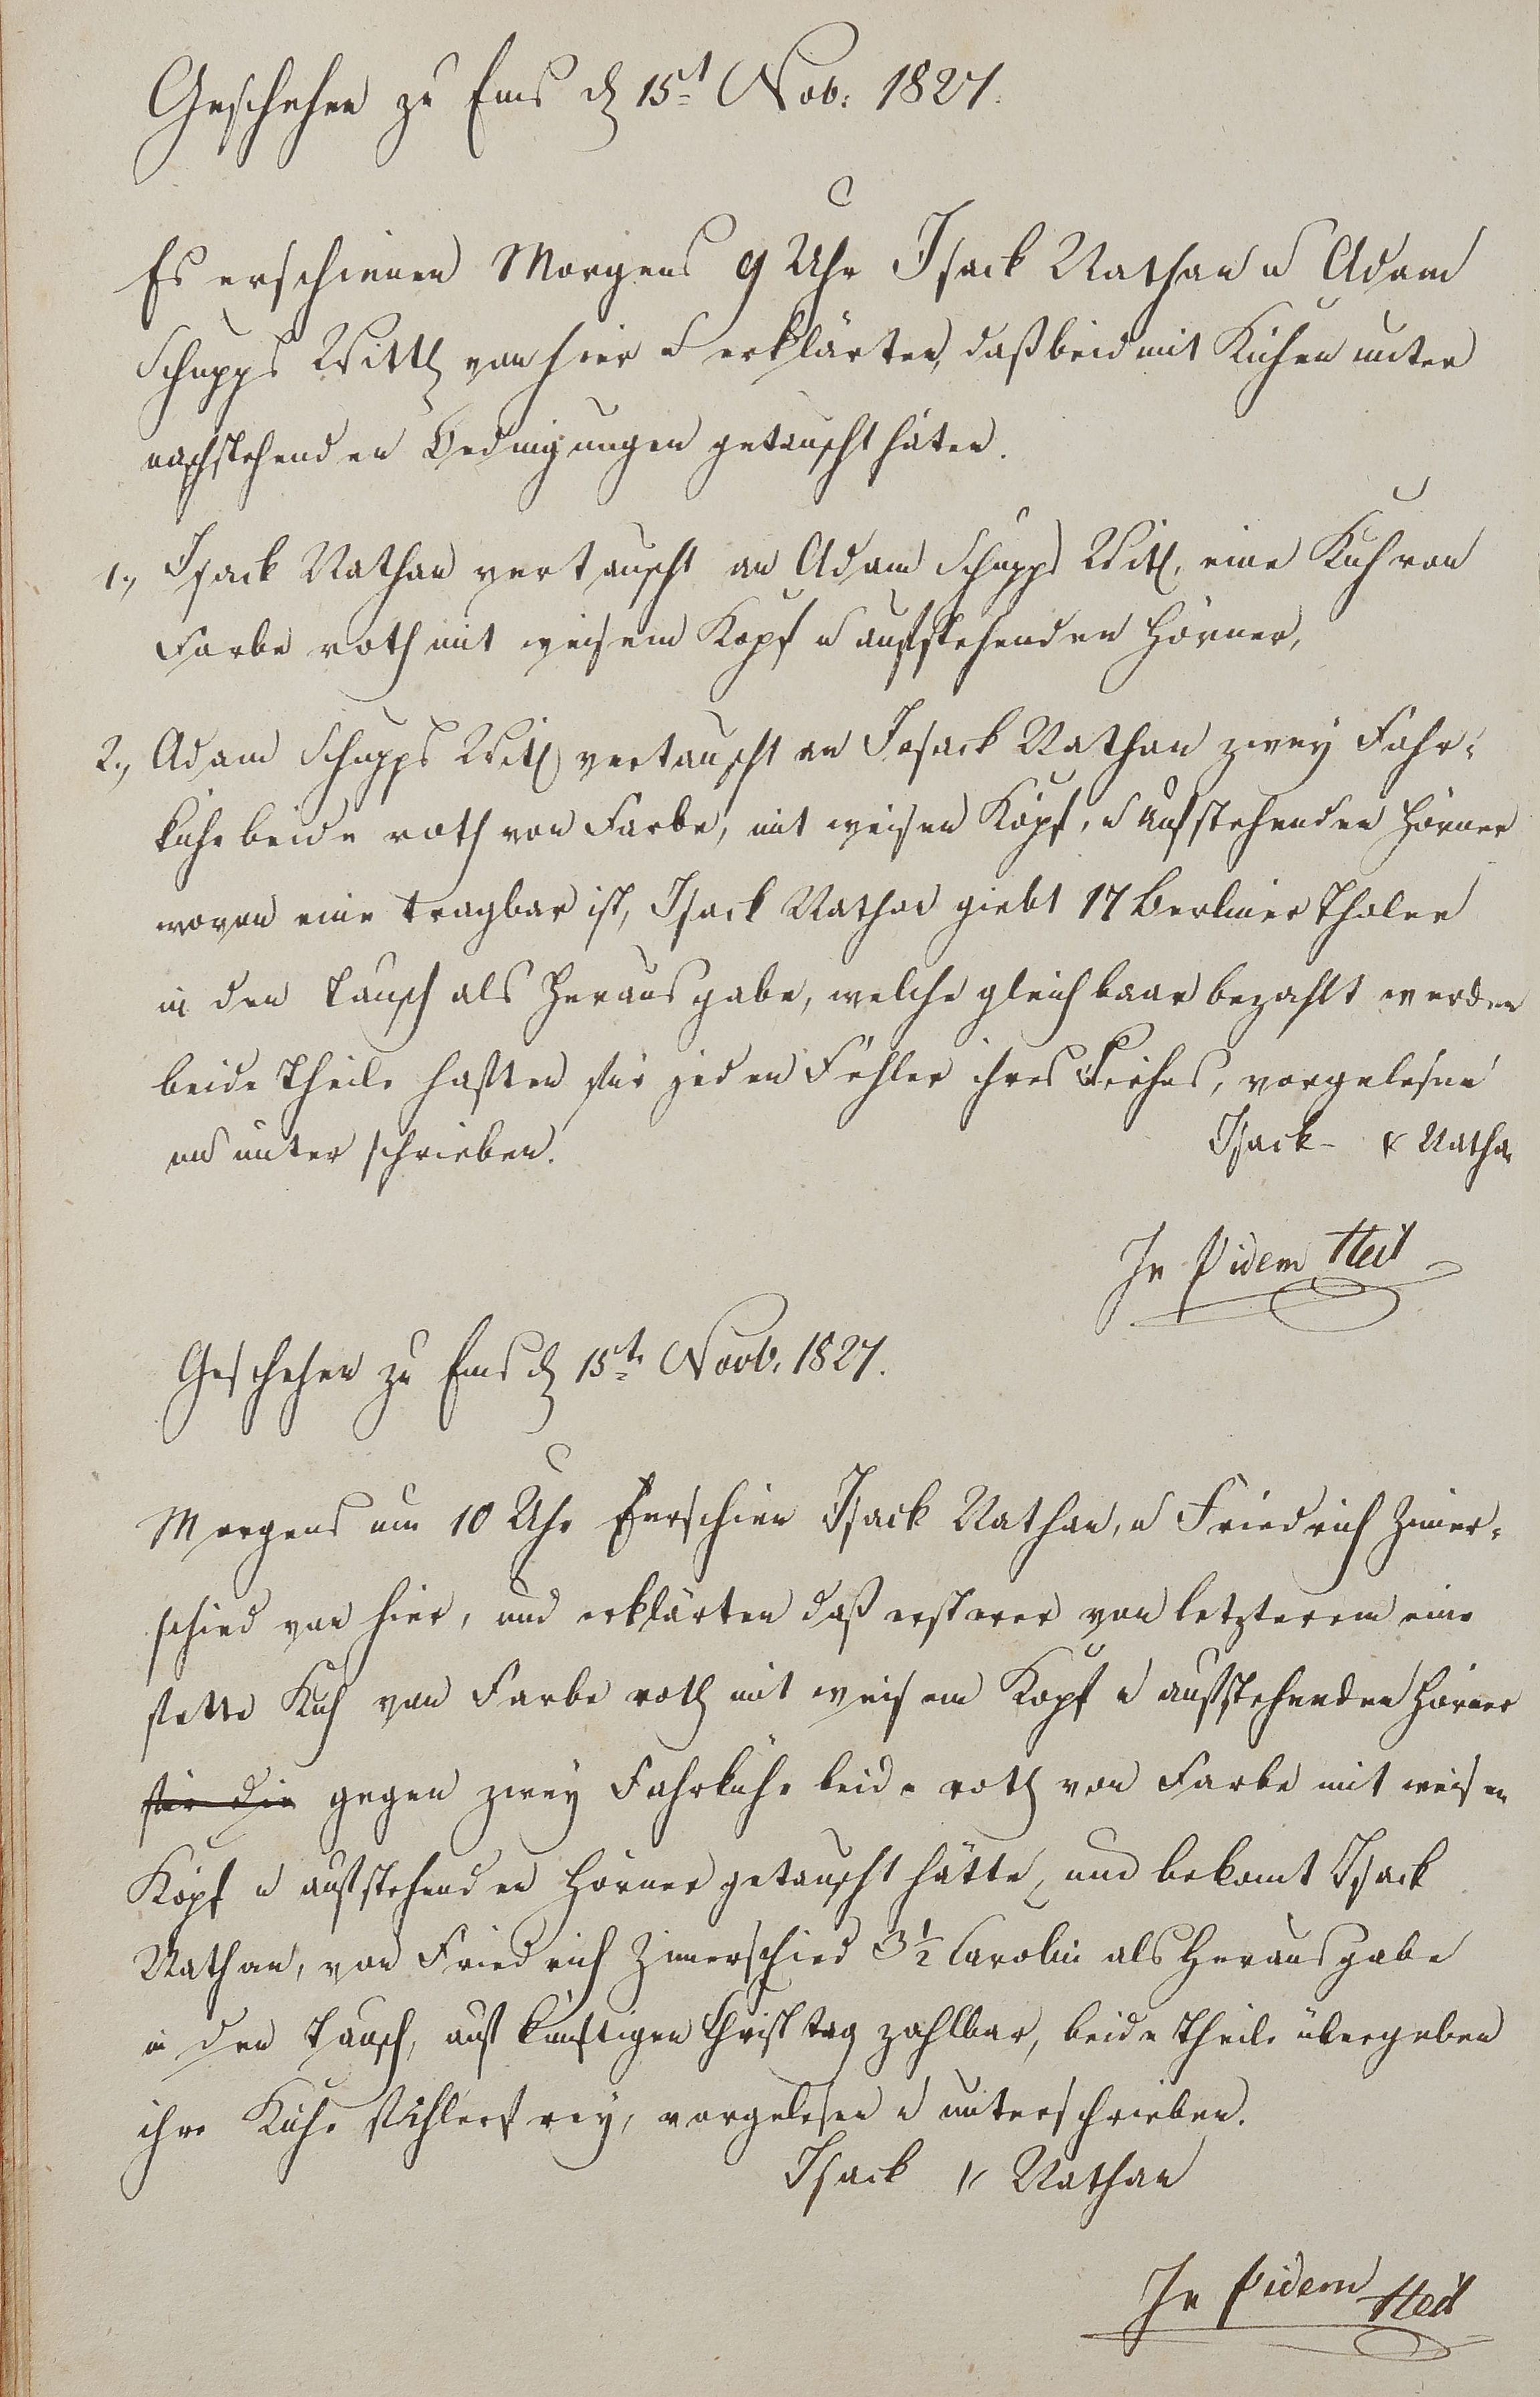 Geschehen zu Ems d 15t Nov: 1827.
Es erschienen Morgens 9 Uhr Isack Nathan u Adam
Schupps Wittb von hier u erklärten, daß beid mit Kühen unter
nachstehenden Bedingungen getauscht häten.
1., Isack Nathan vertauscht an Adam Schupps Witb, eine Kuh von
Farbe roth mit weisem Kopf u aufstehenden Hörner,
2., Adam Schupps Witb vertauscht an Isack Nathan zwey Fahr-
kühe beide roth von Farbe, mit weisen Köpf, u aufstehenden Hörner
wovon eine tragbar ist, Isack Nathan giebt 17 Berliner Thaler
in den Tausch als Herausgabe, welche gleich baar bezahlt werden
beide Theile haften für jeden Fehler ihres Viehes, vorgelesen
und unterschrieben.
Isack Nathan
In fidem
Geschehen zu Ems d 15t Novb. 1827.
Morgens um 10 Uhr Erschien Isack Nathan, u Friedrich Zimer-
schied von hier, und erklärten daß ersterer von letzterem eine
fette Kuh von Farbe roth mit weisem Kopf u aufstehenden Hörner
für die gegen zwey Fahrkühe beide roth von Farbe mit weisen
Köpf u aufstehenden Hörner getauscht hätte, und bekomt Isack
Nathan, von Friedrich Zimerschied 3½ Carolin als Herausgabe
in den Tausch, auf künftigen Christtag zahlbar, beide Theile übergeben
ihre Kühe fehlerfrey, vorgelesen u unterschrieben.
Isack Nathan
In fidem